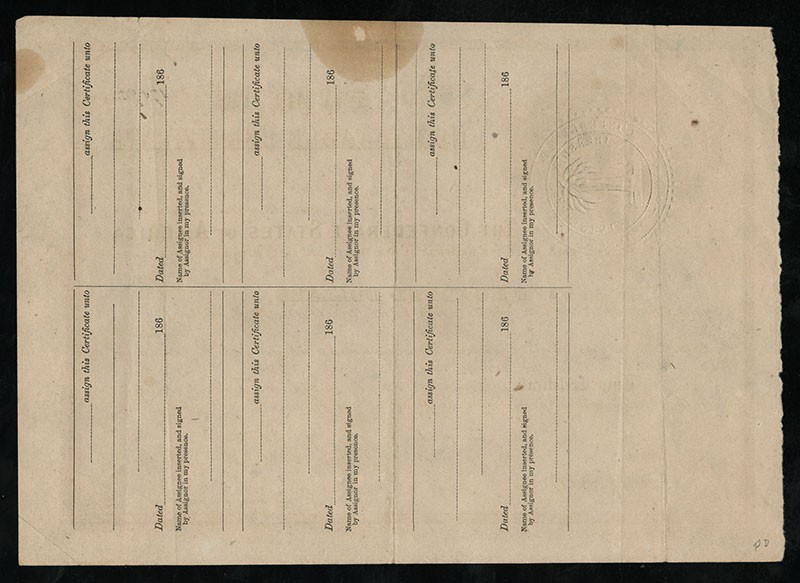 assign this Certificate unto
Dated 186
Name of Assignee inserted, and signed
by Assignor in my presence.
assign this Certificate unto
Dated 186
Name of Assignee inserted, and signed
by Assignor in my presence.
assign this Certificate unto
Dated 186
Name of Assignee inserted, and signed
by Assignor in my presence.
assign this Certificate unto
Dated 186
Name of Assignee inserted, and signed
by Assignor in my presence.
assign this Certificate unto
Dated 186
Name of Assignee inserted, and signed
by Assignor in my presence.
assign this Certificate unto
Dated 186
Name of Assignee inserted, and signed
by Assignor in my presence.